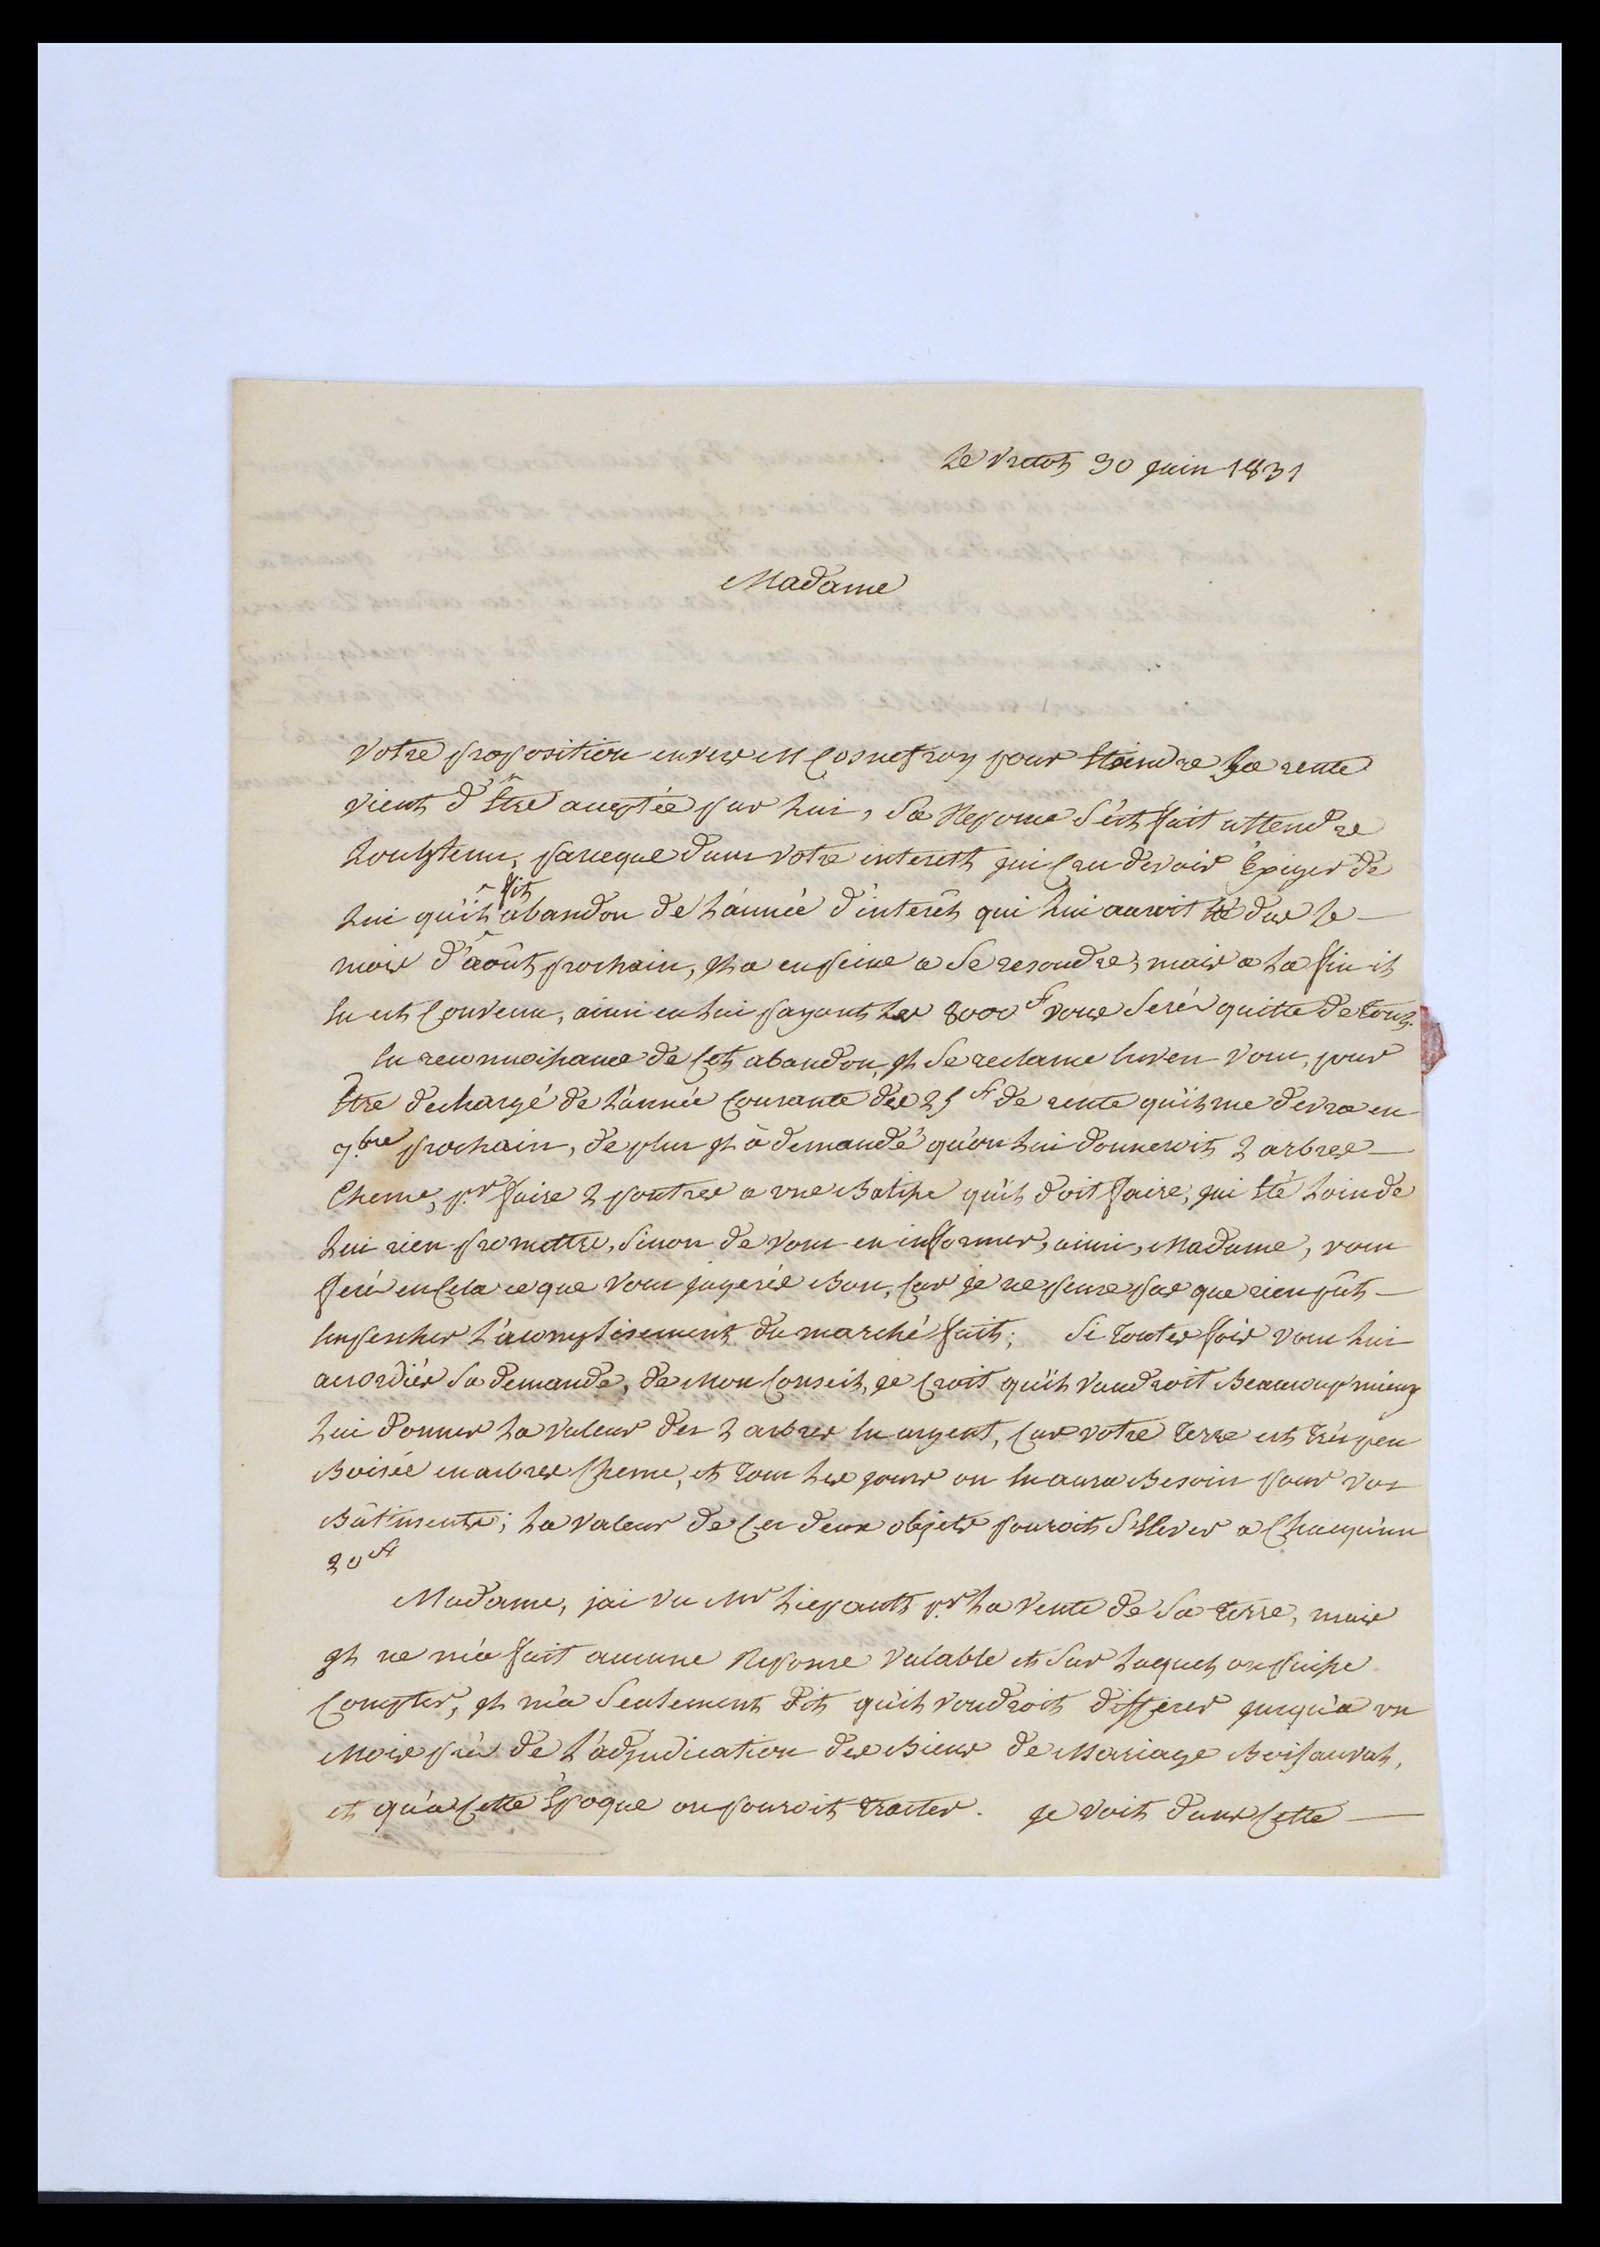 Le Vretot 30 juin 1831
Madame
Votre proposition envers M Cosnefroy pour Eteindre Sa rente
vient d'Etre aceptée par Lui, Sa Reponse S'est fait attendre
Longtems, parceque dans votre interest jai Cru devoir Exiger de
Lui qu'il fit abandon de L'année d'interêt qui Lui auroit été due le
mois d'août prochain, Il a eu peine a Se resoudre, mais a La fin il
En est Convenu, ainsi en Lui payant Les 8000 fr vous Seré quitte de tout.
En reconnoissance de Cet abandon, Il Se reclame Enver vous, pour
Etre dechargé de L'année Courante des 25 fr de rente qu'il me devra en
7.bre prochain, de plus Il à demandé qu'on Lui donneroit 2 arbres
Chene, p.r faire 2 poutres a une Batisse qu'il doit faire, jai Eté Loin de
Lui rien promettre, Sinon de vous en informer, ainsi, Madame, vous
feré en Cela ce que vous jugerés Bon, Car je ne pense pas que rien pût
Empescher L'acomplisement du marché fait; Si toutes fois vous Lui
accordiés Sa demande, de Mon Conseil, je Croit qu'il vaudroit Beaucoup mieux
Lui donner La valeur des 2 arbres En argent, Car votre terre est très peu
Boisée en arbres Chene, et tous Les jours on En aura Besoin pour vos
Bâtiments; La valeur de Ces deux objets pouroit S'Elever a Chaqu'un
20 fr
Madame, jai vu Mr Liepault p.r La Vente de Sa terre, mais
Il ne m'a fait aucune Reponse valable et Sur Laquel on puisse
Compter, Il m'a Seulement dit qu'il voudroit differer jusqu'a un
Mois près de L'adjudication des Biens de Mariage
et qu'a Cette Epoque on pouroit traiter. je voit dans Cette